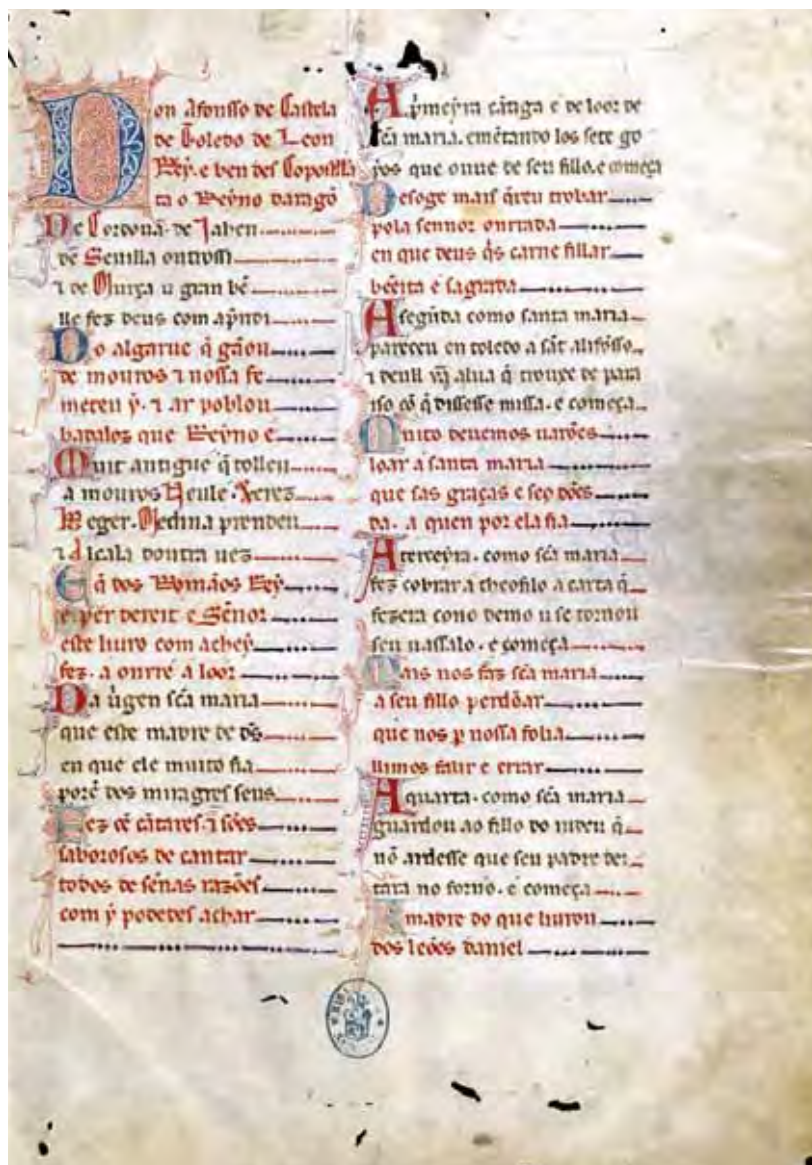 Don Afonsso de Castela
de Toledo de Leon
Rey. e ben des Conpostela
ta o Reyno daragõ
De Cordoua. de Jahen
de Seuilla outrossi
⁊ de Murça u gran bẽ
lle fez deus com ap̃ndi
Do algarue q̃ gãou
de mouros ⁊ nossa fe
meteu y. ⁊ ar poblou
badaloz que Reyno e
Muit antigue q̃ tolleu
a mouros Neule. Xerez
Beger. Medina prendeu
⁊ Alcala doutra uez
E q̃ dos Romãos Rey
é per dereit e Sẽnor
este liuro com achey
fez. a onrr̃ e a loor
Da uirgen sc̃a maria
que éste madre de d̃s
en que ele muito fia
porẽ dos miragres seus
Fez cẽ cãtares ⁊ sões
saborosos de cantar
todos de sẽnas razões
com y podedes achar
A p̃meyra cãtiga é de loor de
sc̃a maria. emẽtando los sete go
yos que ouue de seu fillo. e começa
Desoge mais q̃reu trobar
pola sennor onrrada
en que deus q̃s carne fillar
bẽeita e sagrada
A segũda como santa maria
pareceu en toledo a sãt alifõsso
⁊ deull hũa alua q̃ trouxe de para
iso cõ q̃ dissesse missa. e começa
Muito deuemos uarões
loar a santa maria
que sas graças e seos dões
da. a quen por ela fia
A terceyra. como sc̃a maria
fez cobrar a theofilo a carta q̃
fezera cono demo u se tornou
seu uassalo. e começa
Mais nos faz sc̃a maria
a seu fillo perdõar
que nos p̱ nossa folia
llimos falir e errar
A quarta. como sc̃a maria
guardou ao fillo do iudeu q̃
nõ ardesse que seu padre dei
tara no forno. e começa
A madre do que liurou
dos leões daniel